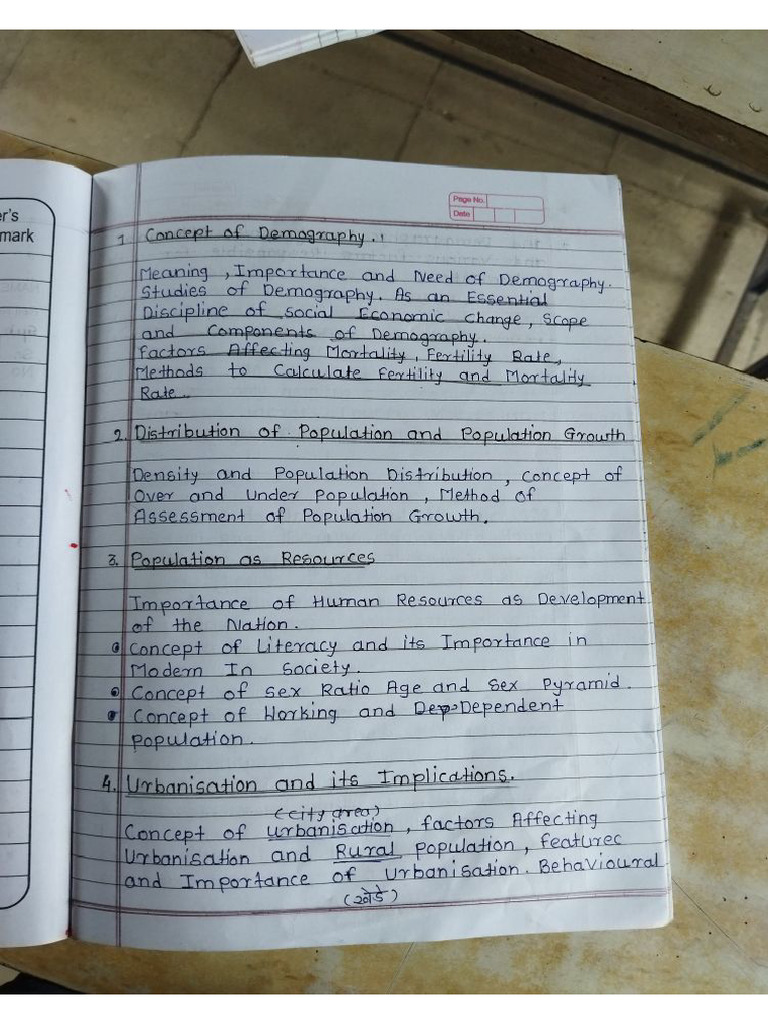 er's
mark
Page No.
Date
1 Concept of Demography.
Meaning, Importance and Need of Demography.
Studies of Demography. As an Essential
Discipline of social Economic change, Scope
and Components of Demography.
Factors Affecting Mortality, Fertility Rate,
Methods to Calculate Fertility and Mortality
Rate.
2. Distribution of Population and Population Growth
Density and Population Distribution, concept of
Over and Under population, Method of
Assessment of Population Growth.
3. Population as Resources
Importance of Human Resources as Development
of the Nation.
Concept of Literacy and its Importance in
Modern In Society.
Concept of Sex Ratio Age and Sex Pyramid.
Concept of Working and Dependent
population.
4. Urbanisation and its Implications.
(city area)
Concept of urbanisation, factors Affecting
Urbanisation and Rural population, featurec
and Importance of Urbanisation. Behavioural